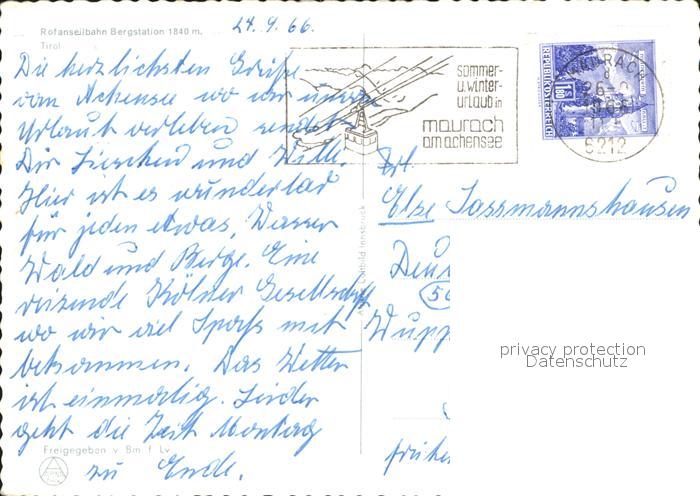 Rofanseilbahn Bergstation 1840 m.
Tirol
24.9.66.
Die herzlichsten Grüße
vom Achensee wo wir unsere
Urlaub verleben sendet
Dir Lieschen und Willi.
Hier ist es wunderbar
für jeden etwas, Wasser
Wald und Berge. Eine
reizende Kölner Gesellschaft
wo wir viel Spaß mit
bekommen. Das Wetter
ist einmalig. Leider
geht die Zeit Montag
zu Ende.
Freigegeben v. Bm. f. Lv.
sommer-
u. winter-
urlaub in
maurach
am achensee
REPUBLIK ÖSTERREICH
MAURACH
6212
Frl.
Else Sassmannshausen
Deu
(56
Wupp
früher
privacy protection
Datenschutz